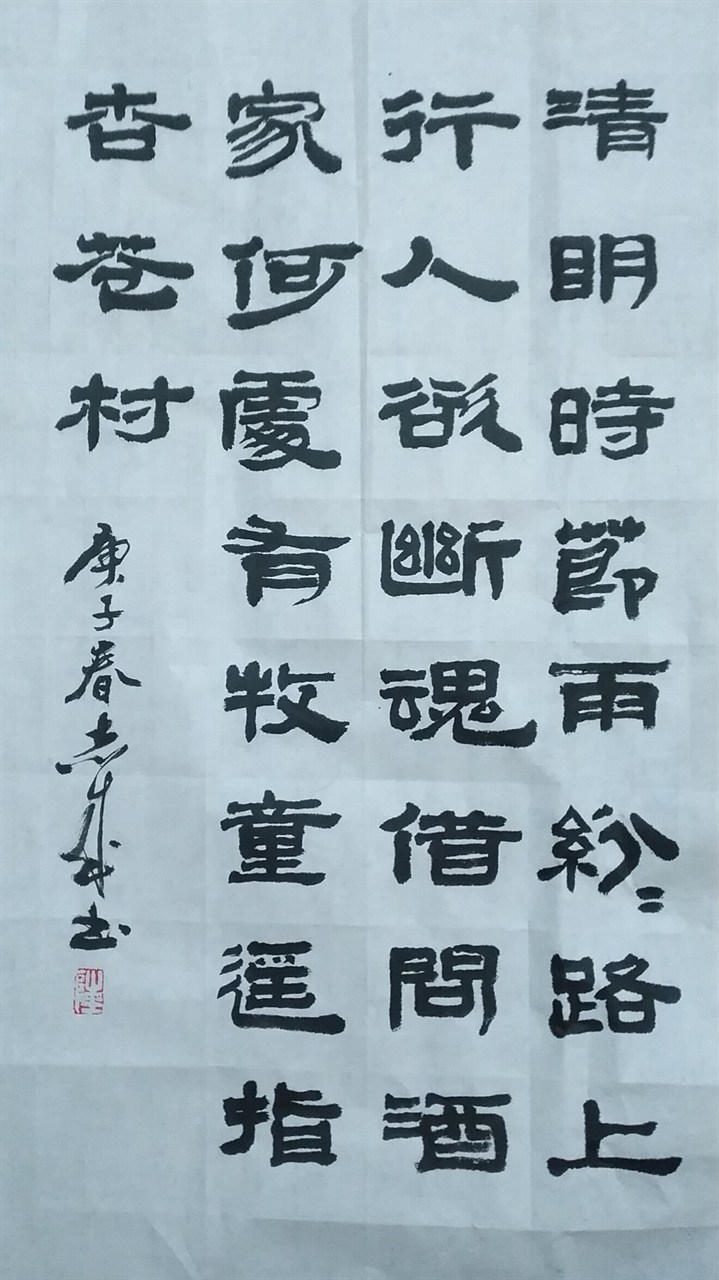 清明時節雨紛〻路上
行人欲斷魂借問酒
家何處有牧童遥指
杏花村
庚子春志成书